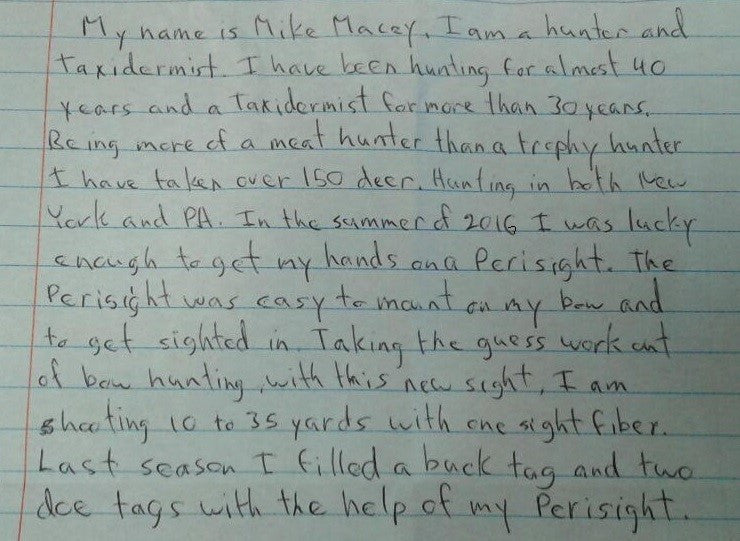 My name is Mike Macey. I am a hunter and
taxidermist. I have been hunting for almost 40
years and a Taxidermist for more than 30 years.
Being more of a meat hunter than a trophy hunter
I have taken over 150 deer. Hunting in both New
York and PA. In the summer of 2016 I was lucky
enough to get my hands on a Perisight. The
Perisight was easy to mount on my bow and
to get sighted in. Taking the guess work out
of bow hunting, with this new sight, I am
shooting 10 to 35 yards with one sight fiber.
Last season I filled a buck tag and two
doe tags with the help of my Perisight.